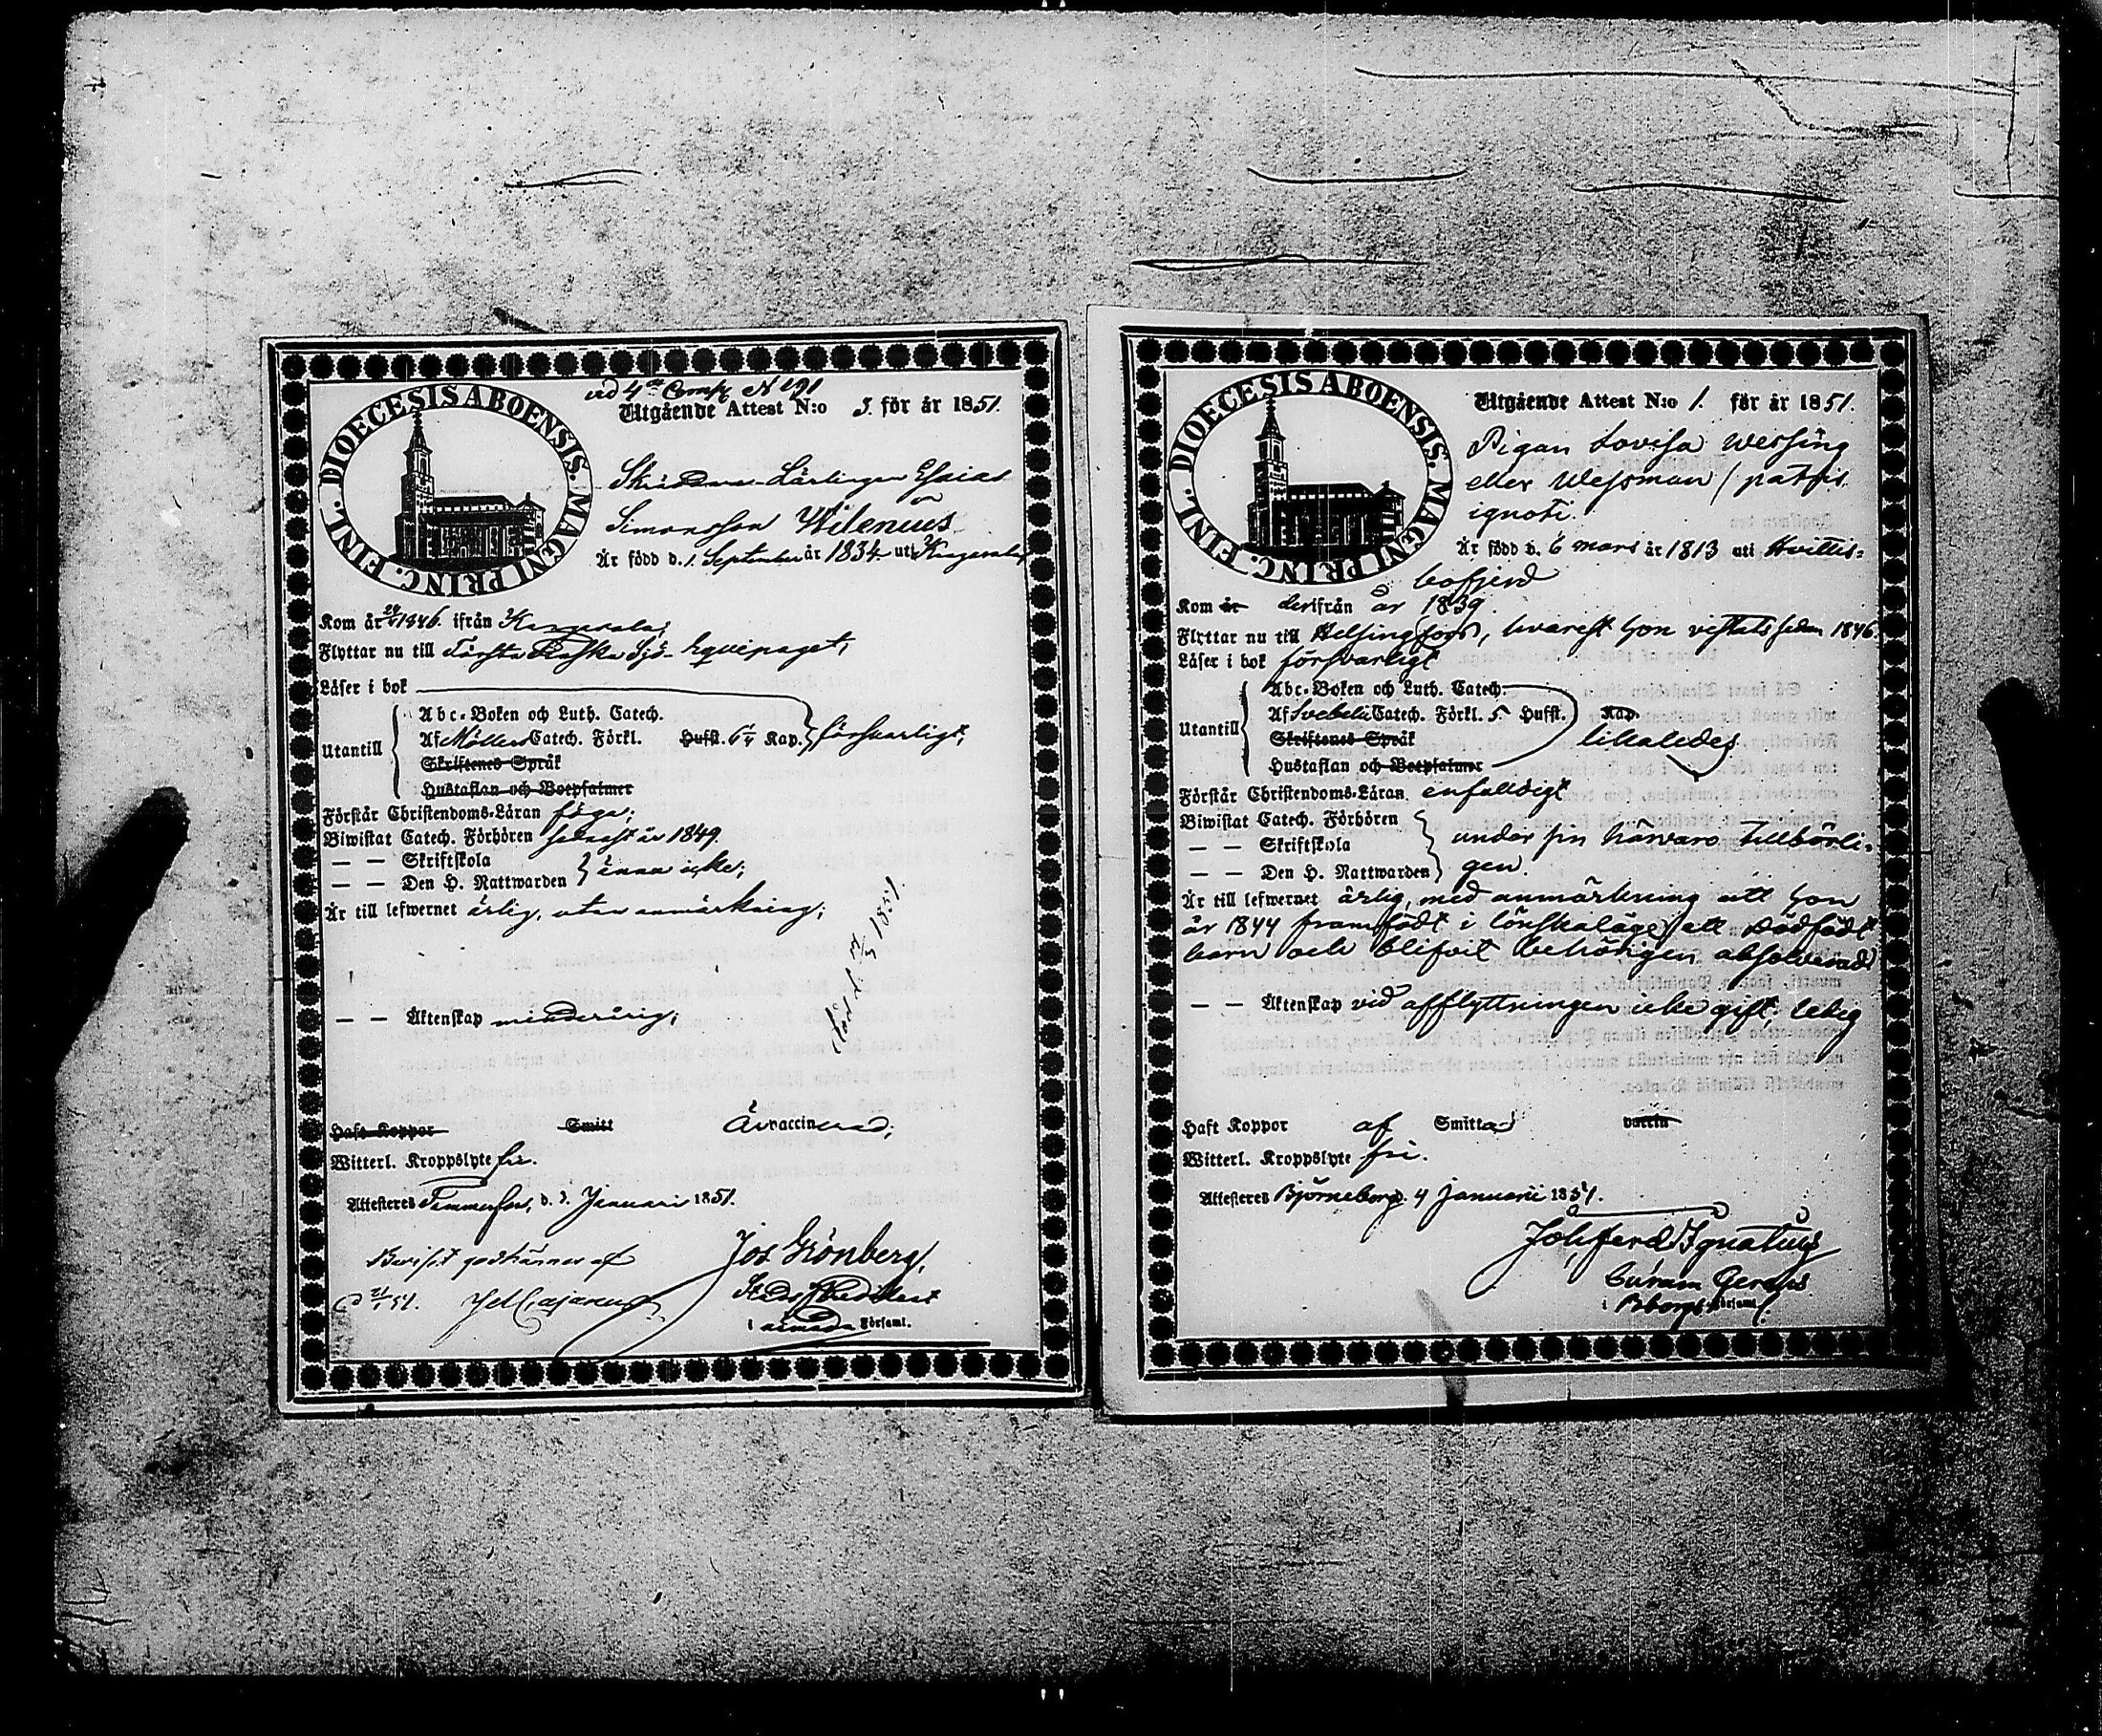 vid 4de Comp. N 191
DIOECESIS ABOENSIS. MAGNI PRINC. FINL.
Utgående Attest N:o 3. för år 1851.
Lärlingen Esaias
Simonsson Wilenius
Är född d. 1. September år 1834 uti Kangasala
Kom år 1846. ifrån Kangasala;
Flyttar nu till Första Finska Sjö-Equipaget,
Läser i bok
Utantill
Abc-Boken och Luth. Catech.
Af Möllers Catech. Förkl. Hufst. Kap. försvarligt;
Skriftenes Språk
Hustaflan och Botpsalmer
Förstår Christendoms-Läran föga;
Biwistat Catech. Förhören senast år 1849.
— — Skriftskola
— — Den H. Nattwarden
ännu icke;
Är till lefwernet ärlig, utan anmärkning;
— — Äktenskap minderårig;
död d. 1851.
Haft Koppor Smitt Är vaccinerad;
Witterl. Kroppslyte fri.
Attesteras Tammerfors, d. 3. Januari 1851.
Beviset godkännes af
Jos Grönberg,
i nämnda Församl.
DIOECESIS ABOENSIS. MAGNI PRINC. FINL.
Utgående Attest N:o 1. för år 1851.
Pigan Lovisa Wessing
eller Wessman / patris
ignoti.
Är född d. 6 mars år 1813 uti Hvittis-
bofjerd
Kom år derifrån år 1839.
Flyttar nu till Helsingfors, hvarest hon vistats sedan 1846.
Läser i bok försvarligt
Utantill
Abc-Boken och Luth. Catech.
Af Svebelii Catech. Förkl. 5 Hufst. Kap.
likaledes
Skriftenes Språk
Hustaflan och Botpsalmer
Förstår Christendoms-Läran enfaldigt
Biwistat Catech. Förhören
— — Skriftskola
— — Den H. Nattwarden
under sin härvaro tillbörli-
gen.
Är till lefwernet ärlig, med anmärkning att hon
år 1844 framfödt i lönskaläge ett dödfödt
barn och blifvit behörigen absolverad
— — Äktenskap vid afflyttningen icke gift, ledig
Haft Koppor af Smittad vaccin
Witterl. Kroppslyte fri.
Attesteras Björneborg d. 4 Januarii 1851.
Joh. Ferd. Ignatius
Curam Gerens
i Bborgs Församl.